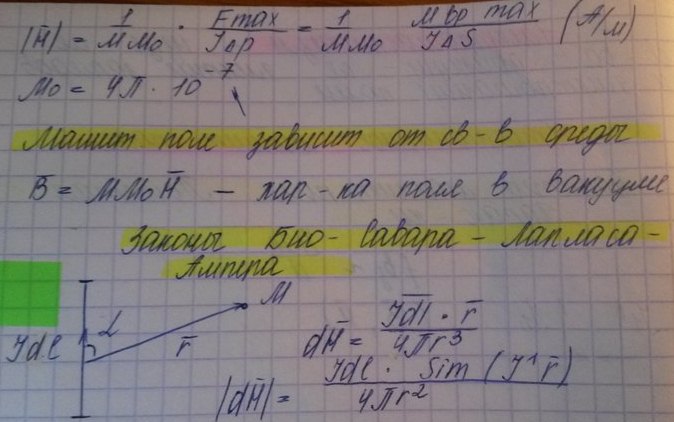 |H̄| = 1/ММо · Fmax/JΔp = 1/ММо Мвр max/JΔS (А/м)
Мо = 4П · 10⁻⁷
Магнит поле зависит от св-в среды
B̄ = ММоH̄ – хар-ка поля в вакууме
Законы Био-Савара-Лапласа-
Ампера
M
Jdl α r̄
dH̄ = J͞d͞l · r̄/4Пr³
|dH̄| = Jdl · Sim (J^r̄)/4Пr²